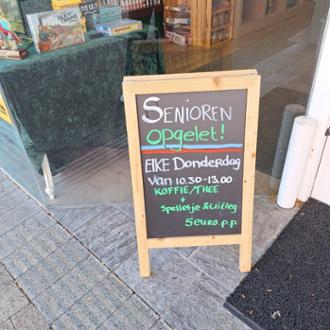 SENIOREN
opgelet!
ELKE Donderdag
VAN 10.30-13.00
KOFFIE/THEE
+
Spelletje & Uitleg
5 euro p.p